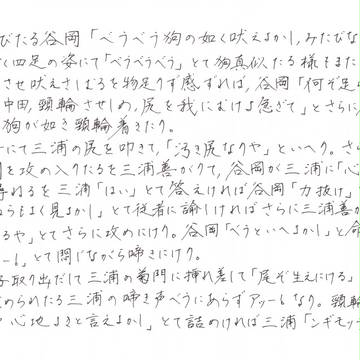 びたる谷岡「べうべう狗の如く吠えよかし、みたびな
く四足の姿にて「べうべうべう」とて狗真似たる様もまた
させ吠えさしむるを物足りず感ずれば、谷岡「何ぞ足
中田、頸輪させしめ、尻を我にむけよ急ぎて」とさらに
狗が如き頸輪着きたり。
にて三浦の尻を叩きて、「汚き尻なりや」といへり。さ
門を攻の入りたるを三浦善がりて、谷岡が三浦に「心
尋ねるを三浦「はい」とて答えければ谷岡「力抜け」
らもよく見よかし」とて従者に諭しければさらに三浦善が
るや」とてさらに攻めにけり。谷岡「べうといへよかし」と命
ーь」とて悶じながら啼きにけり。
子取り出だして三浦の菊門に挿れ差して「尾ぞ生えにける」
められたる三浦の啼き声べうにあらずアッーьなり。頸輪
や心地よきと言えよかし」とて詰めければ三浦「ンギモッ